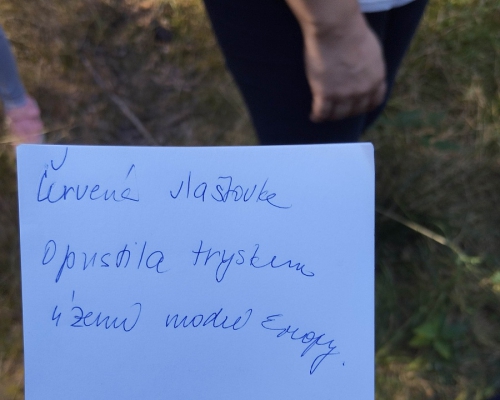 Červená vlaštovka
Opustila tryskem
území modré Evropy.